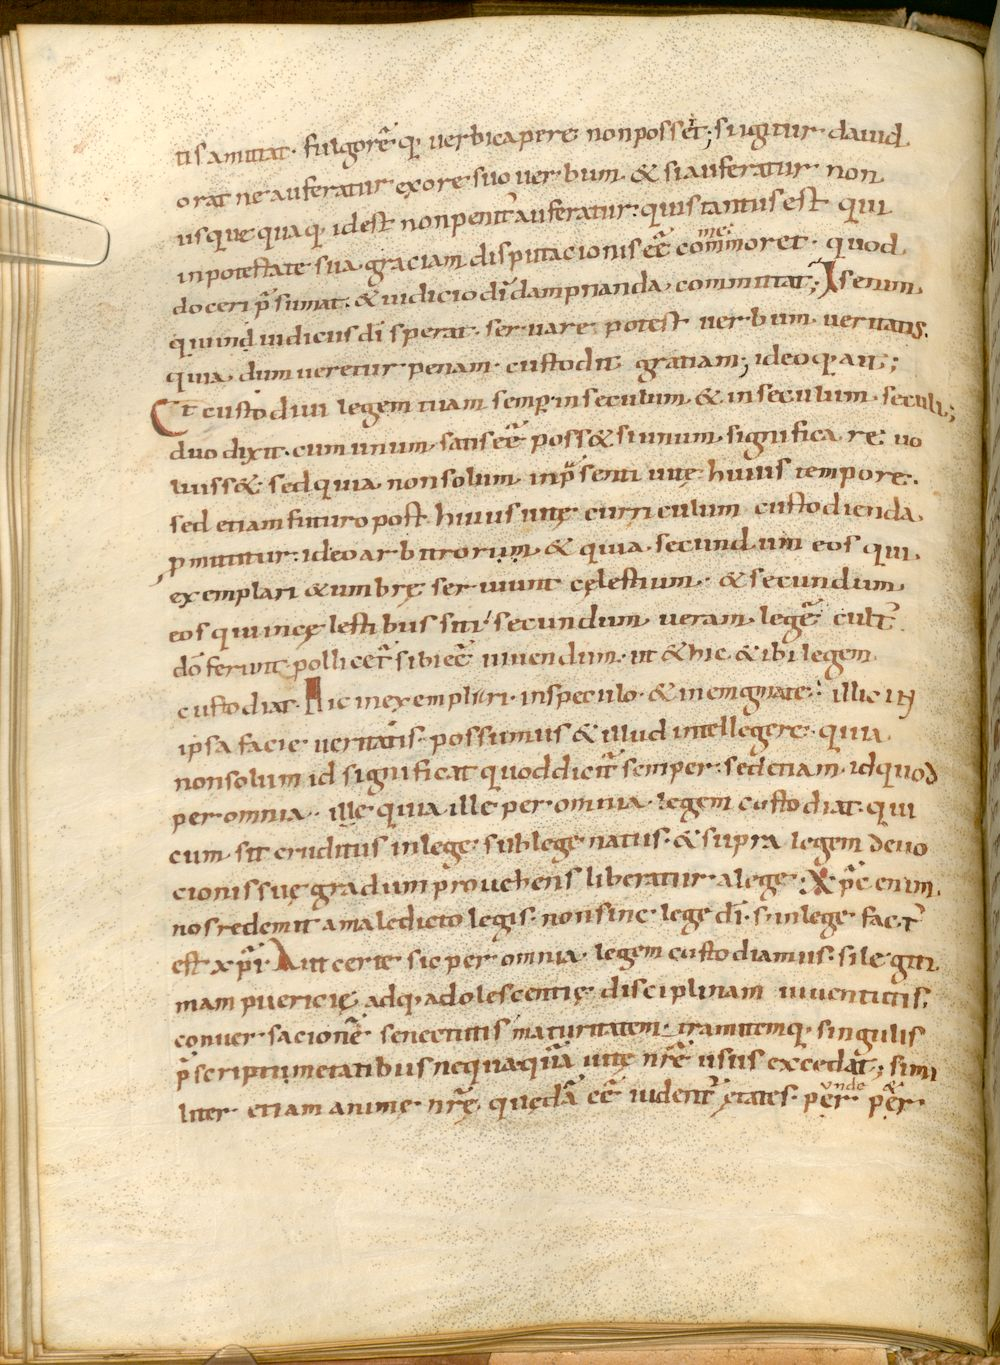 tis amittat. fulgorẽ q; verbi capere non posset; s; igitur dauid
orat ne auferatur ex ore suo uerbum. & si auferatur non
usque quaq; id est non penit' auferatur: quis tantus est qui
in potestate sua graciam disputacionis eẽ commoret. quod
doceri p̃sumat. & iudicio dĩ dampnanda committat; Is enim
qui in d iudicus dĩ sperat. seruare potest verbum ueritatis.
quia dum ueretur penam. custodit gratiam; ideoq; ait;
Et custodiui legem tuam semp in seculum & in seculum seculi;
duo dixit. cum unum satis eẽ poss& si unum significare uo
luiss&: sed quia non solum in p̃senti uitę huius tempore.
sed etiam futuro post huius uitę curriculum custodienda
pmittitur: ideo arbitrorum & quia secundum eos qui
exemplari & umbrę seruiunt cęlestium. & secundum
eos qui in cęlestibus siti secundum ueram legẽ cult̃
dõ ferunt pollicet̃ sibi eẽ uiuendum. ut & hic & ibi legem
custodiat. Hic in exempliri. in speculo. & in enigmate: illic in
ipsa facie ueritatis. possumus & illud intellegere. quia
non solum id significat quod dicit̃ semper. sed etiam id quod
per omnia. ille quia ille per omnia legem custodiat. qui
cum sit eruditus in lege. sub lege natus. & supra legem deuo
cionis suę gradum prouehens liberatur a lege. X p̃c enim
nos redemit a maledicto legis. non sine lege dĩ. s; in lege fact̃
est xp̃i Aut certe sic per omnia legem custodiamus. si legiti
mam puericię adq; adolescentię disciplinam iuuentutis.
conuersacionẽ senectutis maturitatem. tramitemq; singulis
p̃scriptum etatibus nequaquã uitę nr̃ę usus excedat; simi
liter etiam animę nr̃ę quędã eẽ uident̃ ętates. per vnde & per